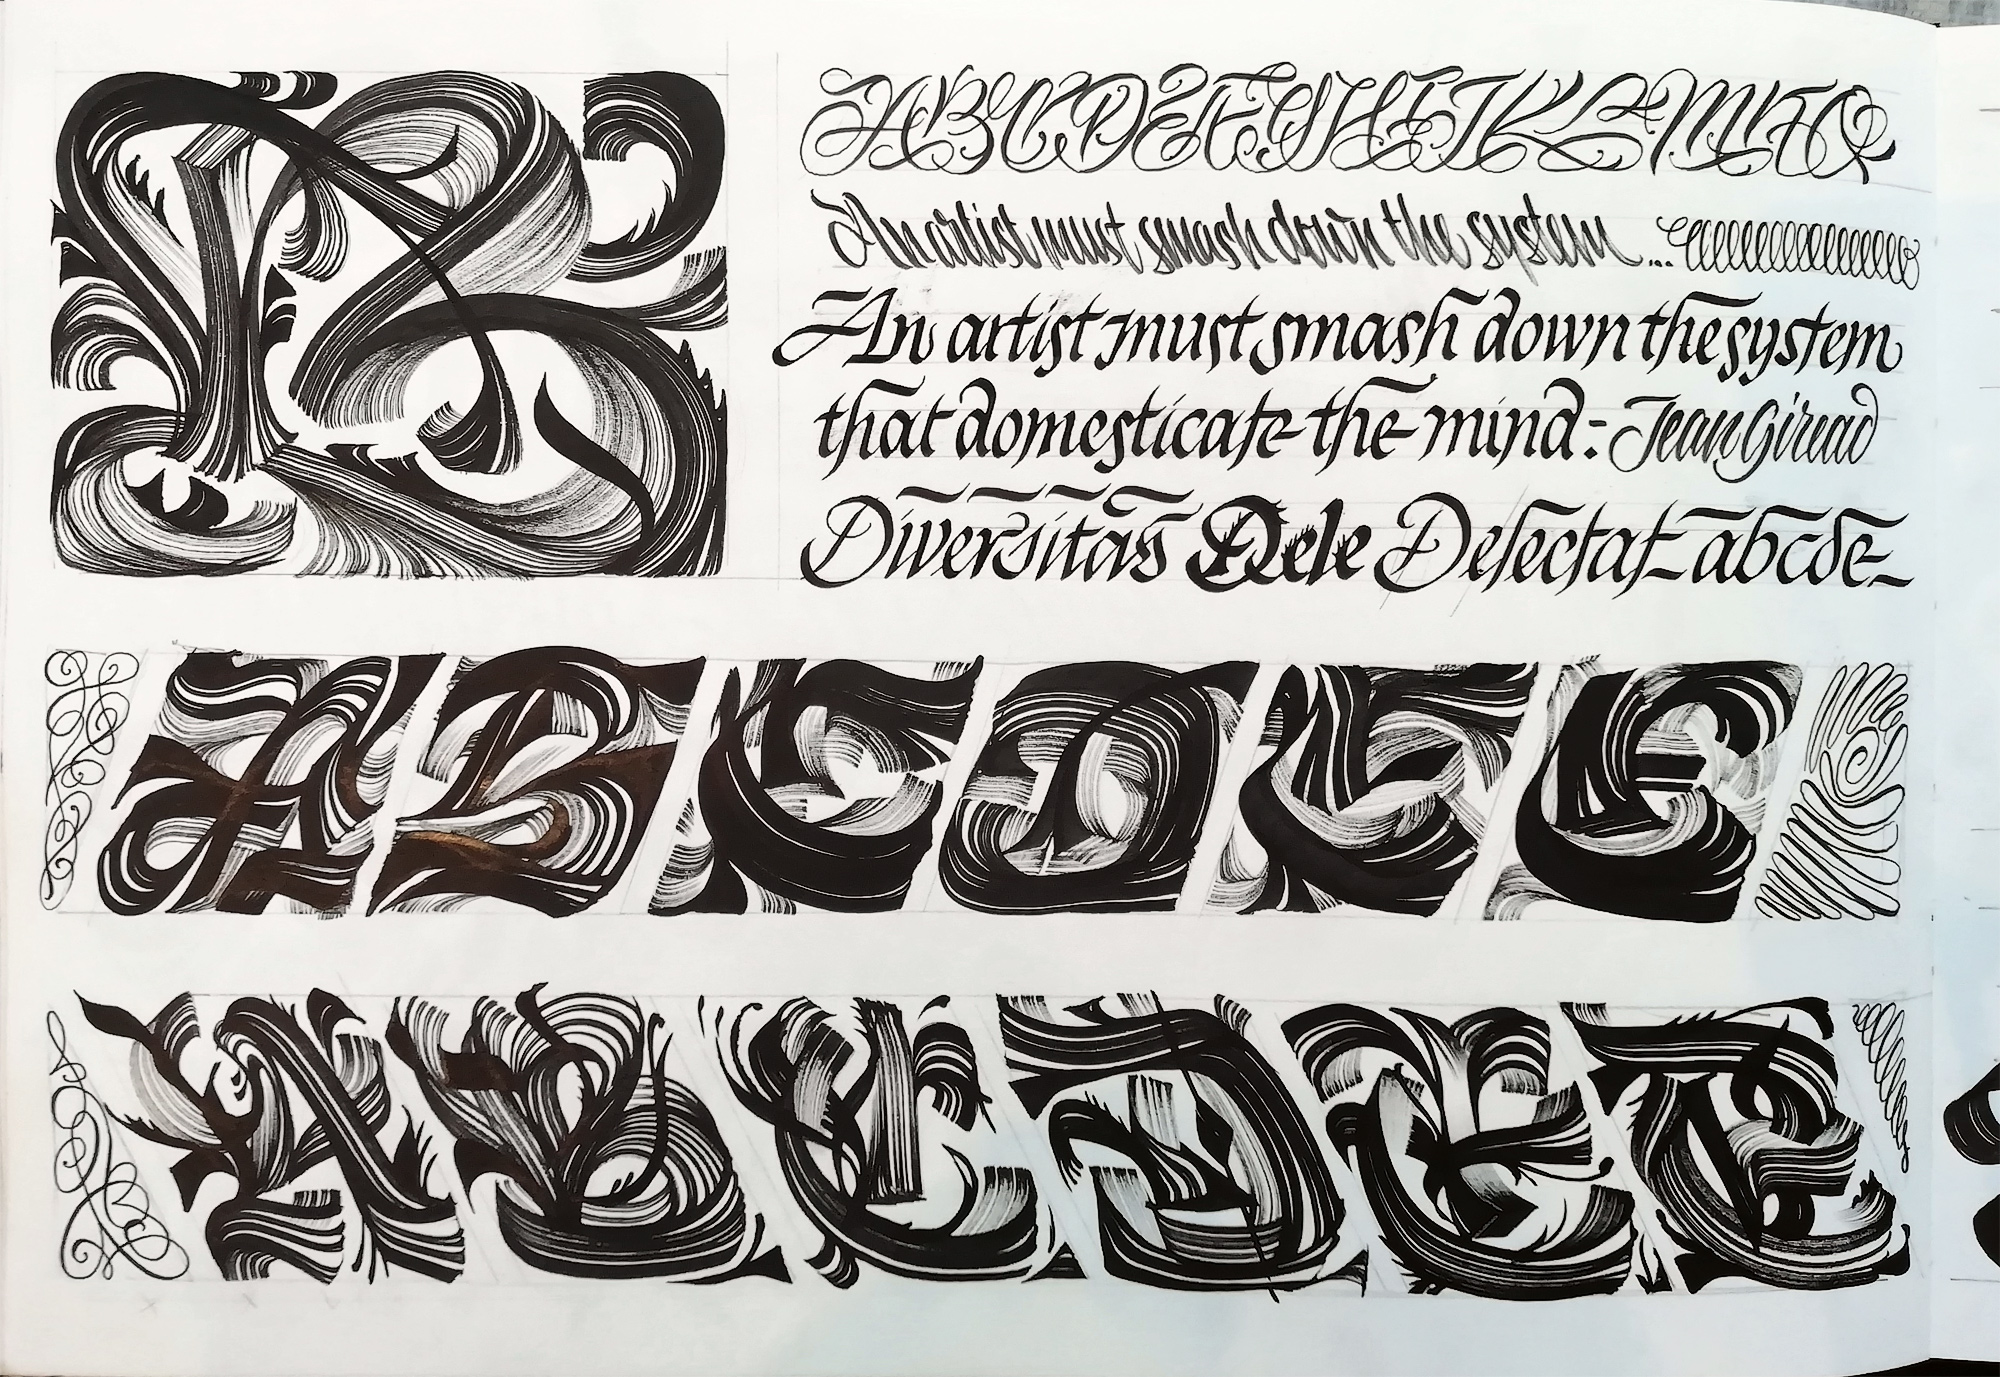 R
ABCDEFGHIJKLMNOQ
An artist must smash down the system...
An artist must smash down the system
that domesticate the mind:-Jean Giraud
Diversitas Dele Delectat abcde
ABCDEF
ABCDEF